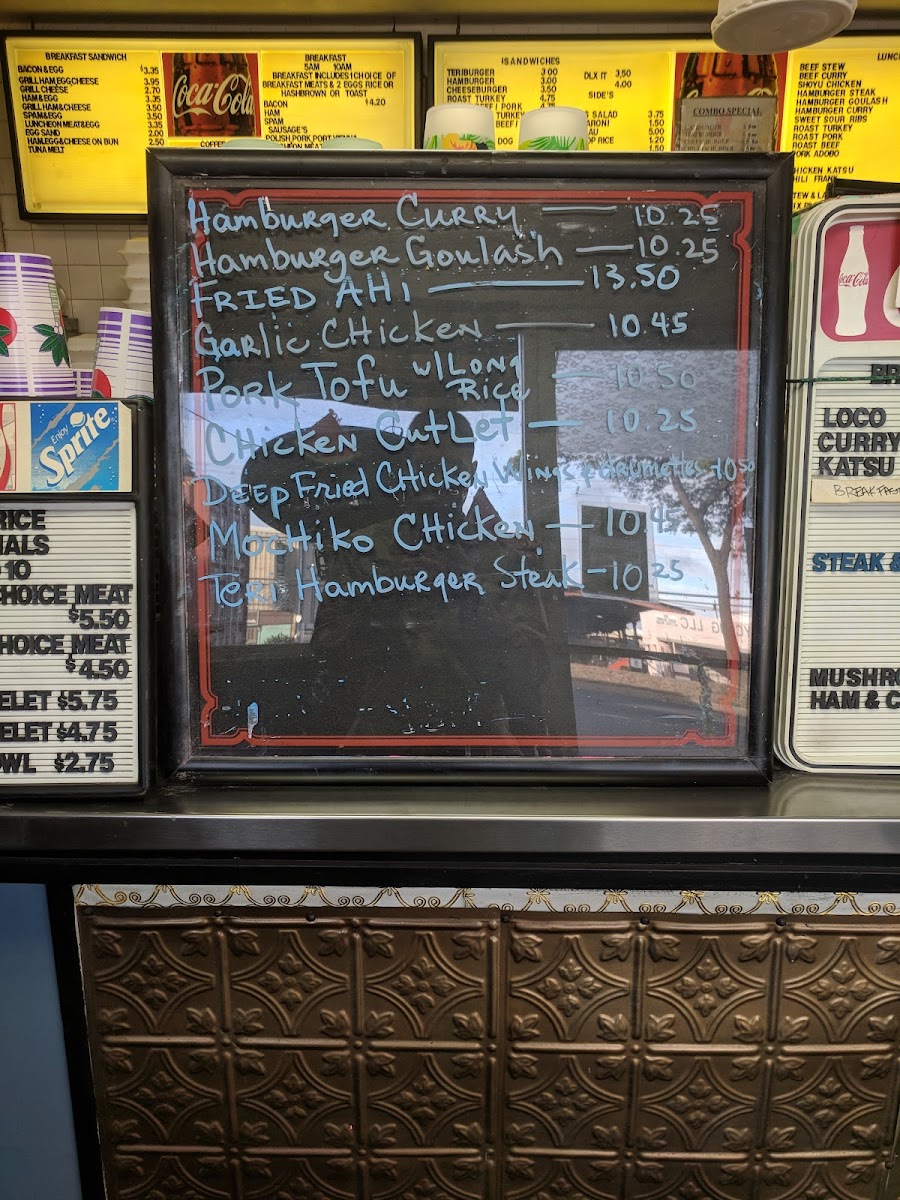 BREAKFAST SANDWICH
BACON & EGG $3.35
GRILL HAM EGG CHEESE 3.95
GRILL CHEESE 2.70
HAM & EGG 3.35
GRILL HAM & CHEESE 3.50
SPAM & EGG 3.50
LUNCHEON MEAT & EGG 3.35
EGG SAND 2.00
HAM, EGG & CHEESE ON BUN 2.50
TUNA MELT
Coca-Cola
BREAKFAST
5AM 10AM
BREAKFAST INCLUDES 1 CHOICE OF
BREAKFAST MEATS & 2 EGGS RICE OR
HASHBROWN OR TOAST
BACON $4.20
HAM
SPAM
SAUSAGE'S
COFFE
SANDWICHES
TERIBURGER 3.00
HAMBURGER 3.00
CHEESEBURGER 3.50
ROAST TURKEY 4.75
DLX IT 3.50
4.00
SIDE'S
SALAD 3.75
1.50
5.00
RICE 1.20
1.50
COMBO SPECIAL
LUNC
BEEF STEW
BEEF CURRY
SHOYU CHICKEN
HAMBURGER STEAK
HAMBURGER GOULASH
HAMBURGER CURRY
SWEET SOUR RIBS
ROAST TURKEY
ROAST PORK
ROAST BEEF
PORK ADOBO
CHICKEN KATSU
Hamburger Curry — 10.25
Hamburger Goulash — 10.25
FRIED AHI — 13.50
Garlic Chicken — 10.45
Pork Tofu w/Long Rice — 10.50
Chicken Cutlet — 10.25
Deep Fried Chicken Wings & drumettes - 10.50
Mochiko Chicken — 10.45
Teri Hamburger Steak - 10.25
Enjoy
Sprite
RICE
IALS
-10
CHOICE MEAT
$5.50
CHOICE MEAT
$4.50
ELET $5.75
ELET $4.75
OWL $2.75
Coca-Cola
BR
LOCO
CURRY
KATSU
BREAKFAS
STEAK &
MUSHRO
HAM & C